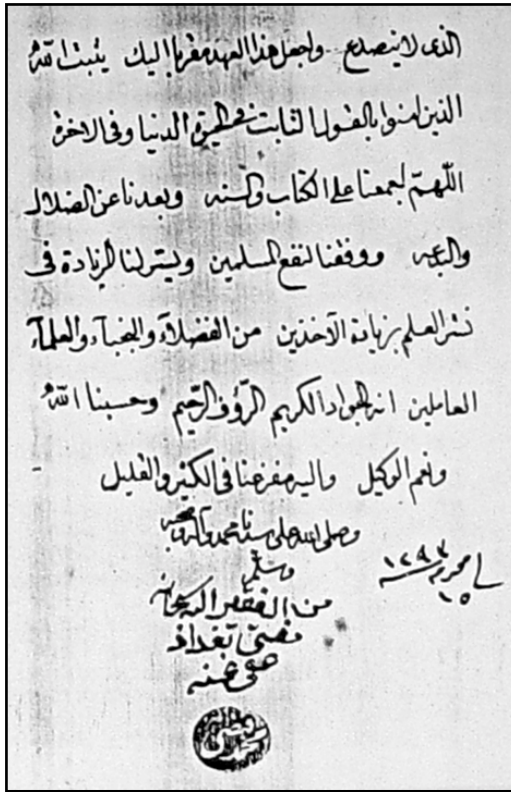 الذى لا ينصدع واجعل هذا العهد مقربا اليك يثبت الله
الذين امنوا بالقول الثابت فى الحيوة الدنيا وفى الاخرة
اللهم اجمعنا على الكتاب والسنه وبعدنا عن الضلال
والبدعه ووفقنا لنفع المسلمين ويسر لنا الزيادة فى
نشر العلم بزيادة الآخذين من الفضلآء والنجبآء والعلمآء
العاملين انه الجواد الكريم الرؤف الرحيم وحسبنا الله
ونعم الوكيل واليه مفزعنا فى الكثير والقليل
وصلى الله على سيدنا محمد وآله وصحبه
وسلم
١٢٩٣
١٥
من الفقير اليه سبحانه
مفتى بغداد
عفى عنه